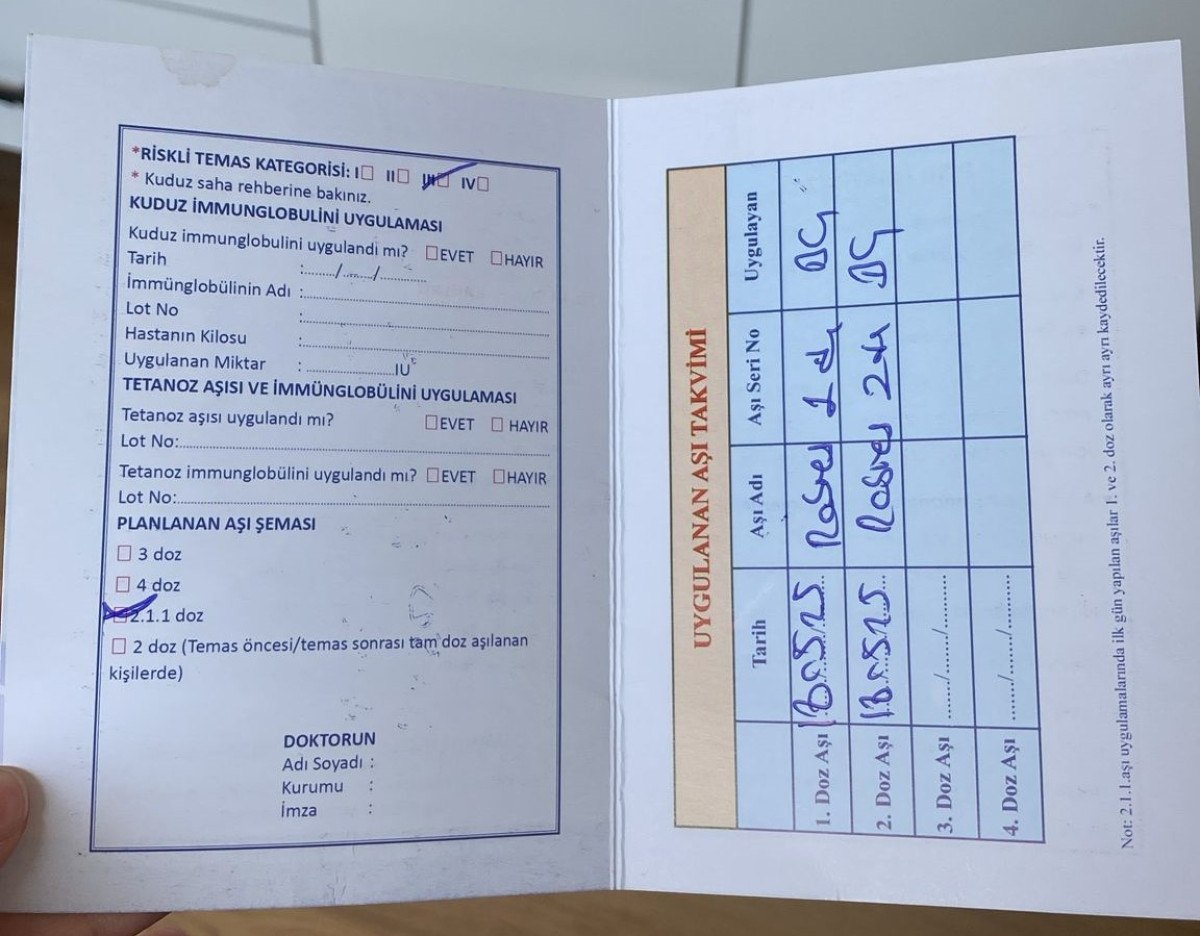 *RİSKLİ TEMAS KATEGORİSİ: I☐ II☐ III☐ IV☐
* Kuduz saha rehberine bakınız.
KUDUZ İMMUNGLOBULİNİ UYGULAMASI
Kuduz immunglobulini uygulandı mı? ☐EVET ☐HAYIR
Tarih :......../......./...........
İmmünglobülinin Adı :
Lot No :
Hastanın Kilosu :
Uygulanan Miktar : ......................IU
TETANOZ AŞISI VE İMMÜNGLOBÜLİNİ UYGULAMASI
Tetanoz aşısı uygulandı mı? ☐EVET ☐ HAYIR
Lot No:
Tetanoz immunglobülini uygulandı mı? ☐EVET ☐HAYIR
Lot No:
PLANLANAN AŞI ŞEMASI
☐ 3 doz
☐ 4 doz
☐ 2.1.1 doz
☐ 2 doz (Temas öncesi/temas sonrası tam doz aşılanan
kişilerde)
DOKTORUN
Adı Soyadı :
Kurumu :
İmza :
UYGULANAN AŞI TAKVİMİ
Tarih Aşı Adı Aşı Seri No Uygulayan
1. Doz Aşı
2. Doz Aşı
3. Doz Aşı ....../....../...........
4. Doz Aşı ....../....../...........
Not: 2.1.1.aşı uygulamalarında ilk gün yapılan aşılar 1. ve 2. doz olarak ayrı ayrı kaydedilecektir.